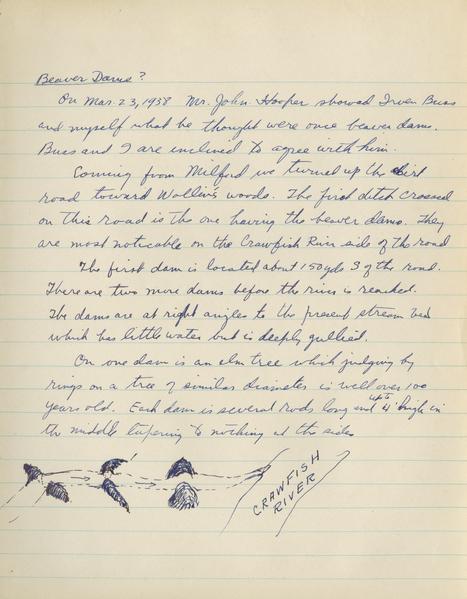 Beaver Dams?
On Mar. 23, 1938 Mr. John Hooper showed Irven Buss
and myself what he thought were once beaver dams.
Buss and I are inclined to agree with him.
Coming from Milford we turned up the dirt
road toward Wollin's woods. The first ditch crossed
on this road is the one having the beaver dams. They
are most noticable on the Crawfish River side of the road
The first dam is located about 150 yds S of the road.
There are two more dams before the river is reached.
The dams are at right angles to the present stream bed
which has little water but is deeply gullied.
On one dam is an elm tree which judging by
rings on a tree of similar diameter is well over 100
years old. Each dam is several rods long and up to 4' high in
the middle tapering to nothing at the sides
CRAWFISH
RIVER